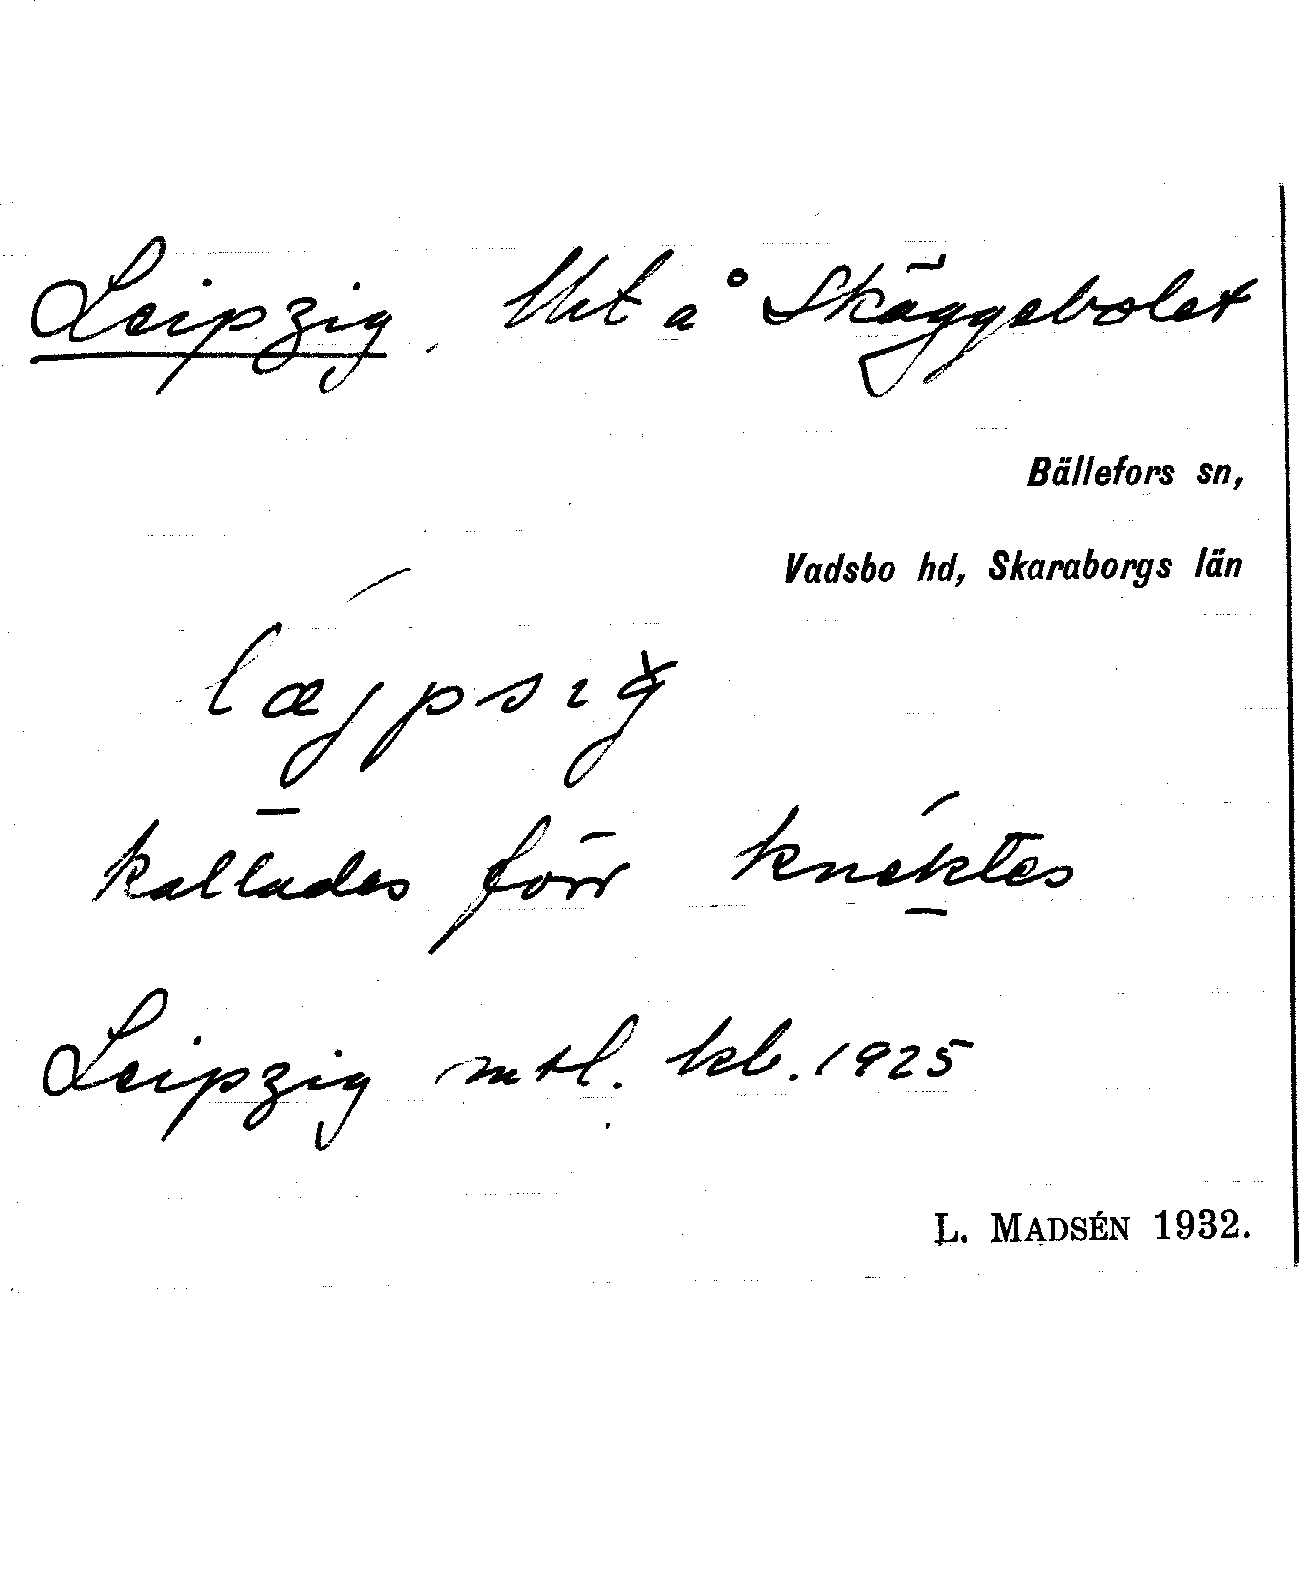 Leipzig, lht å Skäggebolet
Bällefors sn,
Vadsbo hd, Skaraborgs län
læjpsig
kallades förr knektes
Leipzig mtl. kb. 1925
L. MADSÉN 1932.